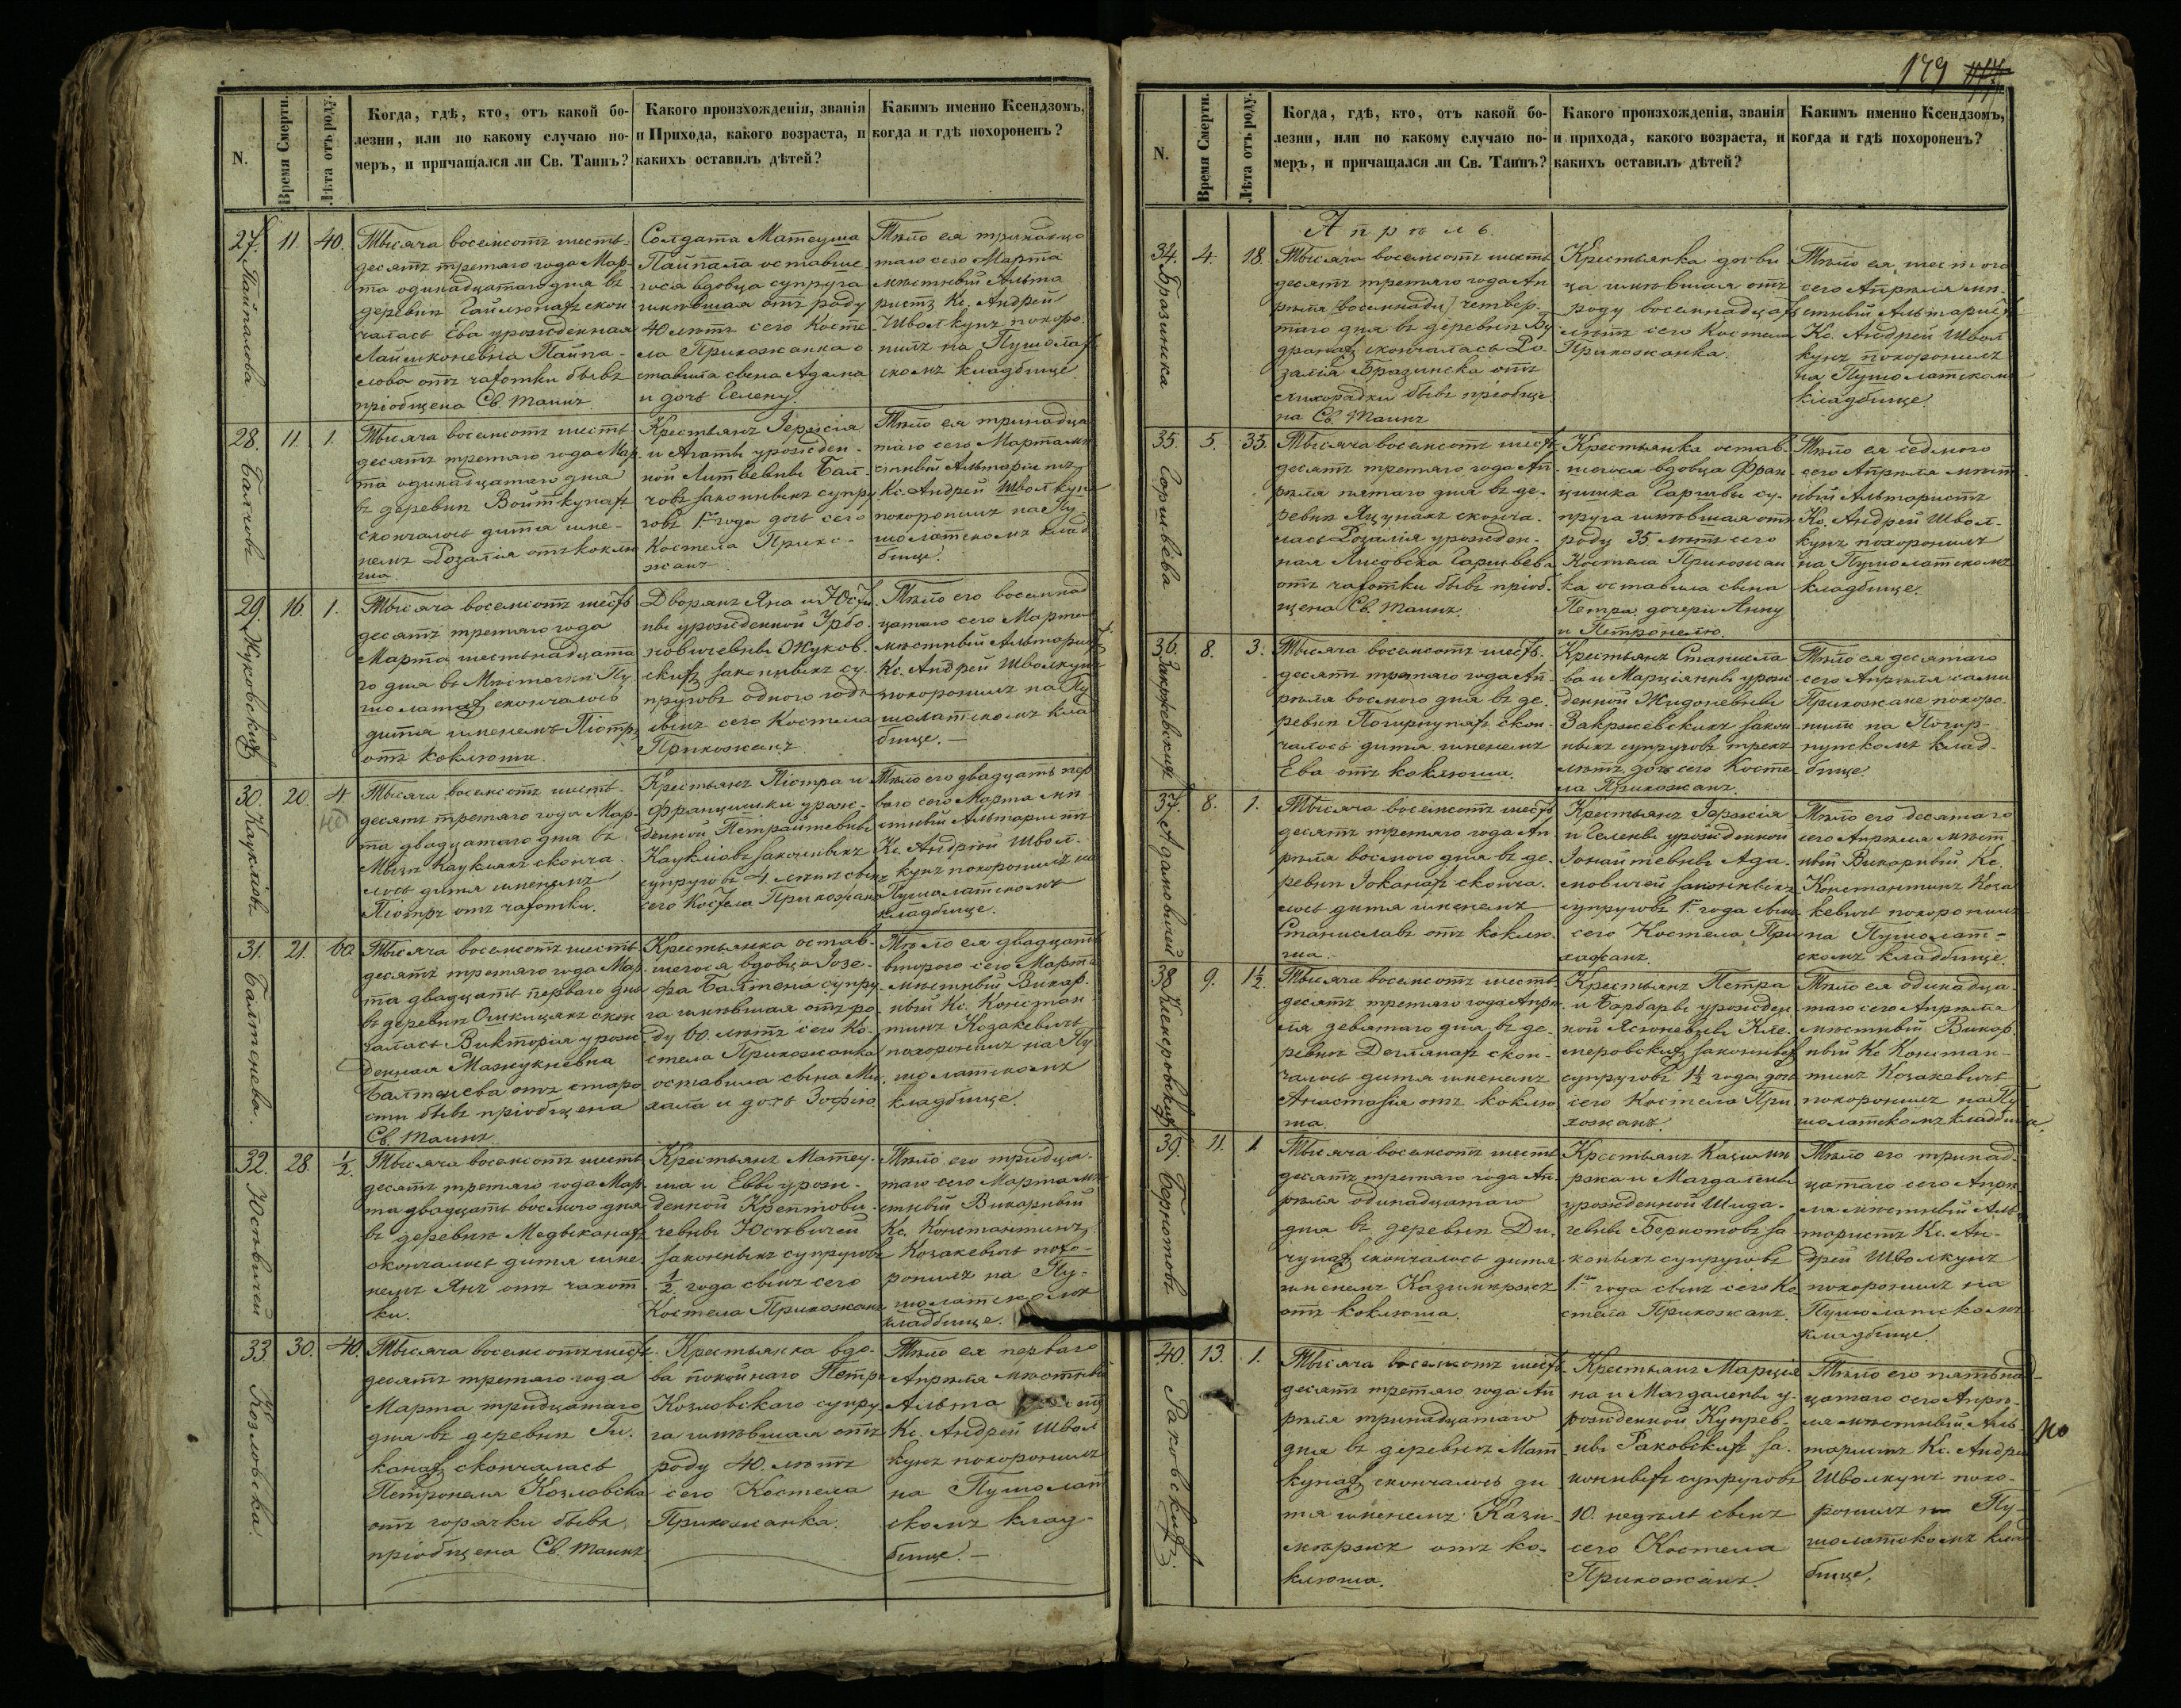 N.
Время Смерти.
Лѣта отъ роду.
Когда, гдѣ, кто, отъ какой бо-
лезни, или по какому случаю по-
меръ, и причащался ли Св. Таинъ?
Какого произхожденія, званія
и Прихода, какого возраста, и
какихъ оставилъ дѣтей?
Какимъ именно Ксендзомъ,
когда и гдѣ похороненъ?
27. Пайпалова
11.
40.
Тысяча восемсотъ шесть-
десятъ третяго года Мар-
та одинадцатаго дня въ
деревнѣ Гайлюнахъ скон
чалась Ева урожденная
Лайшконевна Пайпа-
лова отъ чахотки бывъ
пріобщена Св. Таинъ.
Солдата Матеуша
Пайпала оставше
гося вдовца супруга
имѣвшая отъ роду
40 лѣтъ сего Косте
ла Прихожанка о
ставила сына Адама
и дочь Гелену.
Тѣло ея тринадца
таго сего Марта
мѣстный Альта
ристъ Кс. Андрей
Шволкунъ похоро
нилъ на Пушолат
скомъ кладбище
28.
11.
1.
Тысяча восемсотъ шесть
десятъ третяго года Мар
та одинадцатаго дня
въ деревнѣ Войткунахъ
скончалось дитя име-
немъ Розалія отъ коклю
ша
Крестьянъ Іержія
и Агаты урожден-
ной Литвевны Бал-
човъ законныхъ супру
говъ 1го года дочь сего
Костела Прихо-
жанъ
Тѣло ея тринадца
таго сего Марта мѣ
стный Альтаристъ
Кс. Андрей Шволкунъ
похоронилъ на Пу
шолатскомъ клад
бище.
29. Жуковскихъ
16.
1.
Тысяча восемсотъ шесть
десятъ третяго года
Марта шестьнадцата
го дня въ Мѣстечкѣ Пу
шолатахъ скончалось
дитя именемъ Піотръ
отъ коклюши.
Дворянъ Яна и Юсти
ны урожденной Урбо
новичевны Жуков-
скихъ законныхъ су-
пруговъ одного года
сынъ сего Костела
Прихожанъ
Тѣло его восемнад
цатаго сего Марта
мѣстный Альтаристъ
Кс. Андрей Шволкунъ
похоронилъ на Пу
шолатскомъ клад
бище.—
30. Кауклювъ
20.
4.
Тысяча восемсотъ шесть-
десятъ третяго года Мар-
та двадцатаго дня въ
Мызѣ Кауклахъ сконча-
лось дитя именемъ
Піотръ отъ чахотки.
Крестьянъ Піотра и
Францишки урож-
денной Петрайтевны
Кауклювъ законныхъ
супруговъ 4. лѣтъ сынъ
сего Костела Прихожанъ
Тѣло его двадцать пер
ваго сего Марта мѣ
стный Альтаристъ
Кс. Андрей Швол-
кунъ похоронилъ на
Пушолатскомъ
кладбище.
31. Балтенева.
21.
60
Тысяча восемсотъ шесть-
десятъ третяго года Мар-
та двадцать перваго дня
въ деревнѣ Ошкицяхъ скон
чалась Викторія урож
денная Мажукневна
Балтенева отъ старо
сти бывъ пріобщена
Св. Таинъ.
Крестьянка остав-
шегося вдовца Іозе-
фа Балтена супру
га имѣвшая отъ ро-
ду 60. лѣтъ сего Ко-
стела Прихожанка
оставила сына Ми-
хала и дочь Зофію
Тѣло ея двадцать
втораго сего Марта
мѣстный Викар-
ный Кс. Констан
тинъ Козакевичъ
похоронилъ на Пу-
шолатскомъ
кладбище.
32. Юсѣвичей
28.
½.
Тысяча восемсотъ шесть
десятъ третяго года Мар-
та двадцать восмаго дня
въ деревнѣ Медыканахъ
скончалось дитя име-
немъ Янъ отъ чахот-
ки.
Крестьянъ Матеу-
ша и Еввы урож-
денной Крептови-
чевны Юсѣвичей
законныхъ супруговъ
½ года сынъ сего
Костела Прихожанъ
Тѣло его тридца-
таго сего Марта мѣ
стный Викарный
Кс. Константинъ
Козакевичъ похо-
ронилъ на Пу-
шолатскомъ
кладбище.
33. Козловска.
30.
40.
Тысяча восемсотъ шесть
десятъ третяго года
Марта тридцатаго
дня въ деревнѣ Ги-
канахъ скончалась
Петронеля Козловска
отъ горячки бывъ
пріобщена Св. Таинъ.
Крестьянка вдо-
ва покойнаго Петра
Козловскаго супру
га имѣвшая отъ
роду 40. лѣтъ
сего Костела
Прихожанка.
Тѣло ея перваго
Апрѣля мѣстный
Альта
Кс. Андрей Швол
кунъ похоронилъ
на Пушолат
скомъ клад-
бище.—
179
N.
Время Смерти.
Лѣта отъ роду.
Когда, гдѣ, кто, отъ какой бо-
лезни, или по какому случаю по-
меръ, и причащался ли Св. Таинъ?
Какого произхожденія, званія
и прихода, какого возраста, и
какихъ оставилъ дѣтей?
Какимъ именно Ксендзомъ,
когда и гдѣ похороненъ?
Апрѣль.
34. Бразинска
4.
18.
Тысяча восемсотъ шесть
десятъ третяго года Ап
рѣля [восемнадц] четвер-
таго дня въ деревнѣ Бу
дранахъ скончалась Ро-
залія Бразинска отъ
лихорадки бывъ пріобще
на Св. Таинъ
Крестьянка дѣви
ца имѣвшая отъ
роду восемнадцать
лѣтъ сего Костела
Прихожанка.
Тѣло ея шестого
сего Апрѣля мѣ-
стный Альтаристъ
Кс. Андрей Швол
кунъ похоронилъ
на Пушолатскомъ
кладбище.
35. Гаршвева
5.
35.
Тысяча восемсотъ шесть
десятъ третяго года Ап-
рѣля пятаго дня въ де-
ревнѣ Яцунахъ сконча-
лась Розалія урожден-
ная Лисовска Гаршвева
отъ чахотки бывъ пріоб-
щена Св. Таинъ.
Крестьянка остав-
шегося вдовца Фран
цишка Гаршвы су-
пруга имѣвшая отъ
роду 35. лѣтъ сего
Костела Прихожан
ка оставила сына
Петра, дочери Анну
и Петронелю.
Тѣло ея седмого
сего Апрѣля мѣст
ный Альтаристъ
Кс. Андрей Швол-
кунъ похоронилъ
на Пушолатскомъ
кладбище.
36. Закржевскихъ
8.
3.
Тысяча восемсотъ шесть-
десятъ третяго года Ап-
рѣля восмого дня въ де-
ревнѣ Погирнупяхъ скон-
чалось дитя именемъ
Ева отъ коклюша.
Крестьянъ Станисла
ва и Марціянны урож
денной Жидоневны
Закржевскихъ закон
ныхъ супруговъ трехъ
лѣтъ дочь сего Косте
ла Прихожанъ.
Тѣло ея десятаго
сего Апрѣля сами
Прихожане похоро-
нили на Погир-
нупскомъ клад-
бище.
37. Адамовичей
8.
1.
Тысяча восемсотъ шесть
десятъ третяго года Ап-
рѣля восмого дня въ де-
ревнѣ Іоканахъ сконча-
лось дитя именемъ
Станиславъ отъ коклю-
ша.
Крестьянъ Іержія
и Гелены урожденной
Іонайтевны Ада-
мовичей законныхъ
супруговъ 1. года сынъ
сего Костела При
хожанъ.
Тѣло его десятаго
сего Апрѣля мѣст
ный Викарный Кс.
Константинъ Коза
кевичъ похоронилъ
на Пушолат-
скомъ кладбище.
38.
9.
1½.
Тысяча восемсотъ шесть
десятъ третяго года Апрѣ
ля девятаго дня въ де-
ревнѣ Деглянахъ скон-
чалось дитя именемъ
Анастазія отъ коклю
ша.
Крестьянъ Петра
и Барбары урожден
ной Ясюневны Кле-
меровскихъ законныхъ
супруговъ 1½ года дочь
сего Костела При
хожанъ.
Тѣло ея одинадца-
таго сего Апрѣля
мѣстный Викар-
ный Кс Констан-
тинъ Козакевичъ
похоронилъ на Пу
шолатскомъ кладбище.
39. Бернотовъ
11.
1
Тысяча восемсотъ шесть
десятъ третяго года Ап-
рѣля одинадцатаго
дня въ деревнѣ Ди-
чунахъ скончалось дитя
именемъ Казимиржъ
отъ коклюша.
Крестьянъ Казими
ржа и Магдалены
урожденной Шида-
гевны Бернотовъ за
конныхъ супруговъ
1го года сынъ сего Ко
стела Прихожанъ.
Тѣло его тринад-
цатаго сего Апрѣ
ля мѣстный Аль
таристъ Кс. Ан-
дрей Шволкунъ
похоронилъ на
Пушолатскомъ
кладбище.
40. Раковскихъ
13.
1.
Тысяча восемсотъ шесть
десятъ третяго года Ап
рѣля тринадцатаго
дня въ деревнѣ Мат-
кунахъ скончалось ди
тя именемъ Кази-
миржъ отъ ко-
клюша.
Крестьянъ Марція
на и Магдалены у-
рожденной Купрев-
ны Раковскихъ за-
конныхъ супруговъ
10. недѣль сынъ
сего Костела
Прихожанъ.
Тѣло его пятьнад-
цатаго сего Апрѣ-
ля мѣстный Аль
таристъ Кс. Андрей
Шволкунъ похо-
ронилъ на Пу-
шолатскомъ клад-
бище.